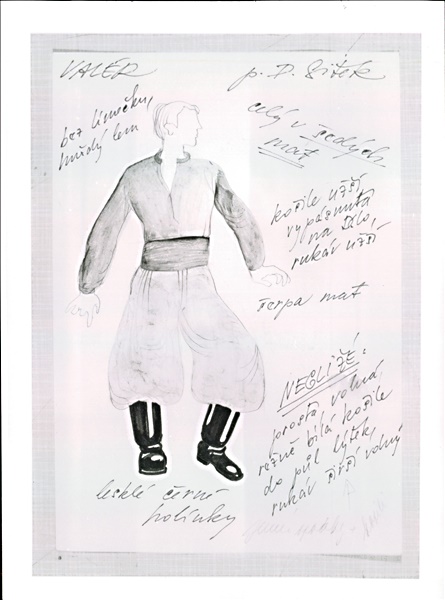 VALÉR
p. D. Sitek
bez límečku,
hrubý lem
celý v šedých
mat
košile užší,
vypásnutá
na tělo,
rukáv užší
šerpa mat
NEGLIŽÉ:
prostá, volná,
režně bílá košile
do půl lýtek,
rukáv širší volný
lesklé černé
holínky